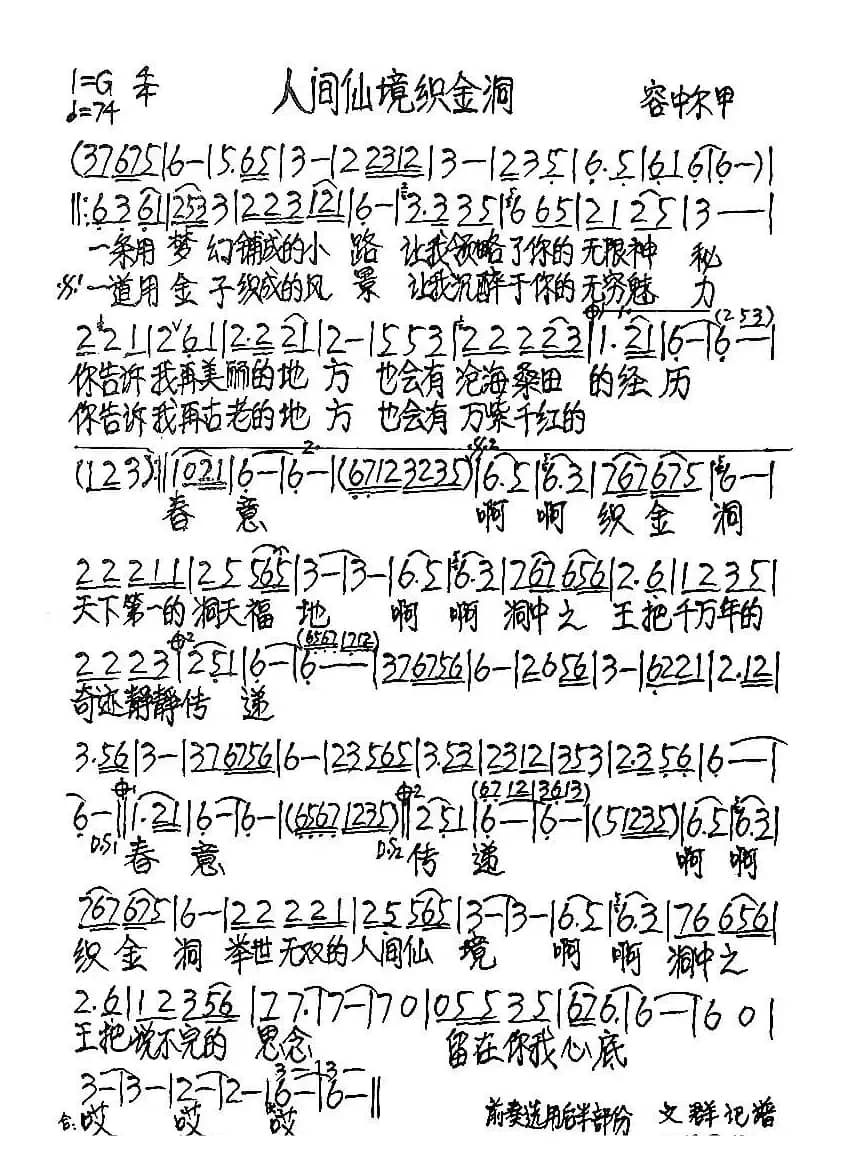 1=G 4/4 人间仙境织金洞 容中尔甲
♩=74
(37675|6-|5.65|3-|22312|3-|235|6.5|616|6-)|
‖:6361|2533|223121|6-|3.335|665|2125|3--|
一条用梦幻铺成的小路 让我领略了你的无限神秘
一道用金子织成的风景 让我沉醉于你的无穷魅力
2211|261|2.221|2-|553|22223|1.21|6-|6--| (253)
你告诉我再美丽的地方 也会有沧海桑田的经历
你告诉我再古老的地方 也会有万紫千红的
(123):‖1021|6-|6-|(67123235)|6.5|6.3|767675|6-|
春意 啊啊织金洞
222211|25565|3-|3-|6.5|6.3|767656|2.6|1235|
天下第一的洞天福地 啊啊洞中之王把千万年的
2223|251|6-|6--|376756|6-|20656|3-|6221|2.121| (6567 1712)
奇迹静静传递
3.56|3-|376756|6-|23565|3.53|2312|353|2.356|6--|
6-‖1.21|6-|6-|(65671235)‖251|6-|6-|(51235)|6.5|6.3| (6712 3613)
D.S1 春意 D.S2 传递 啊啊
767675|6-|222221|25565|3-|3-|6.5|6.3|76656|
织金洞 举世无双的人间仙境 啊啊洞中之
2.6|12356|27.|7-|70|05535|676.|6-|60|
王把说不完的思念 留在你我心底
3-|3-|2-|2-|6-|6-‖ 3-|3-
合:哎 哎 哎 前奏选用后半部份 文群记谱